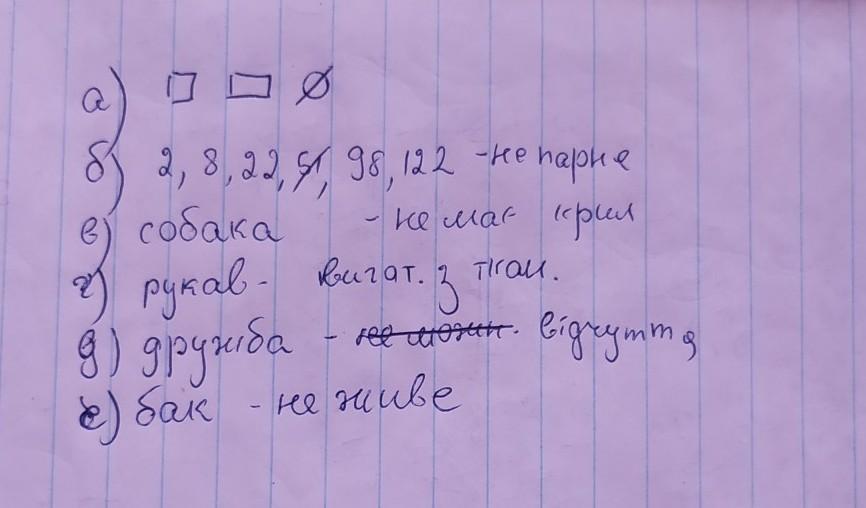 а)
б) 2, 8, 22, 51, 98, 122 - не парне
в) собака - не має крил
г) рукав - вигат. з ткан.
д) дружба - не можн. відчуття
е) бак - не живе